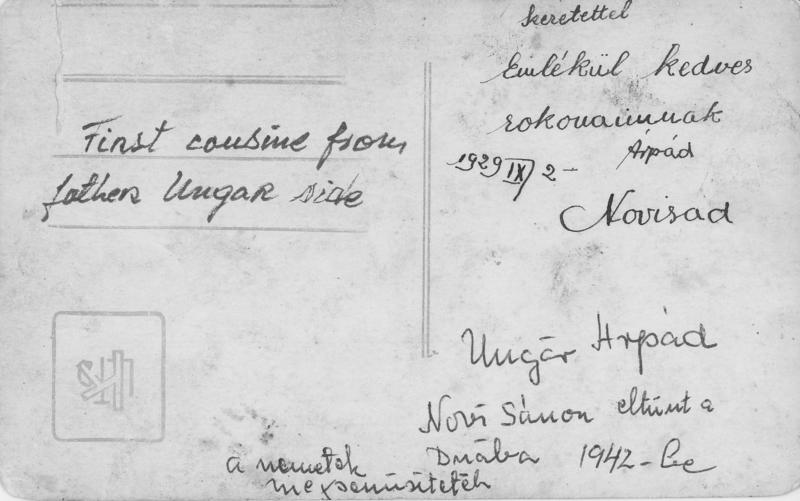 First cousine from
father Ungar side
szeretettel
Emlékül kedves
rokonaimnak
Árpád
1929 IX/2-
Novisad
Ungár Arpád
Novi Sánon eltünt a
Dnába 1942-be
a nemetek
megsemisitetéh